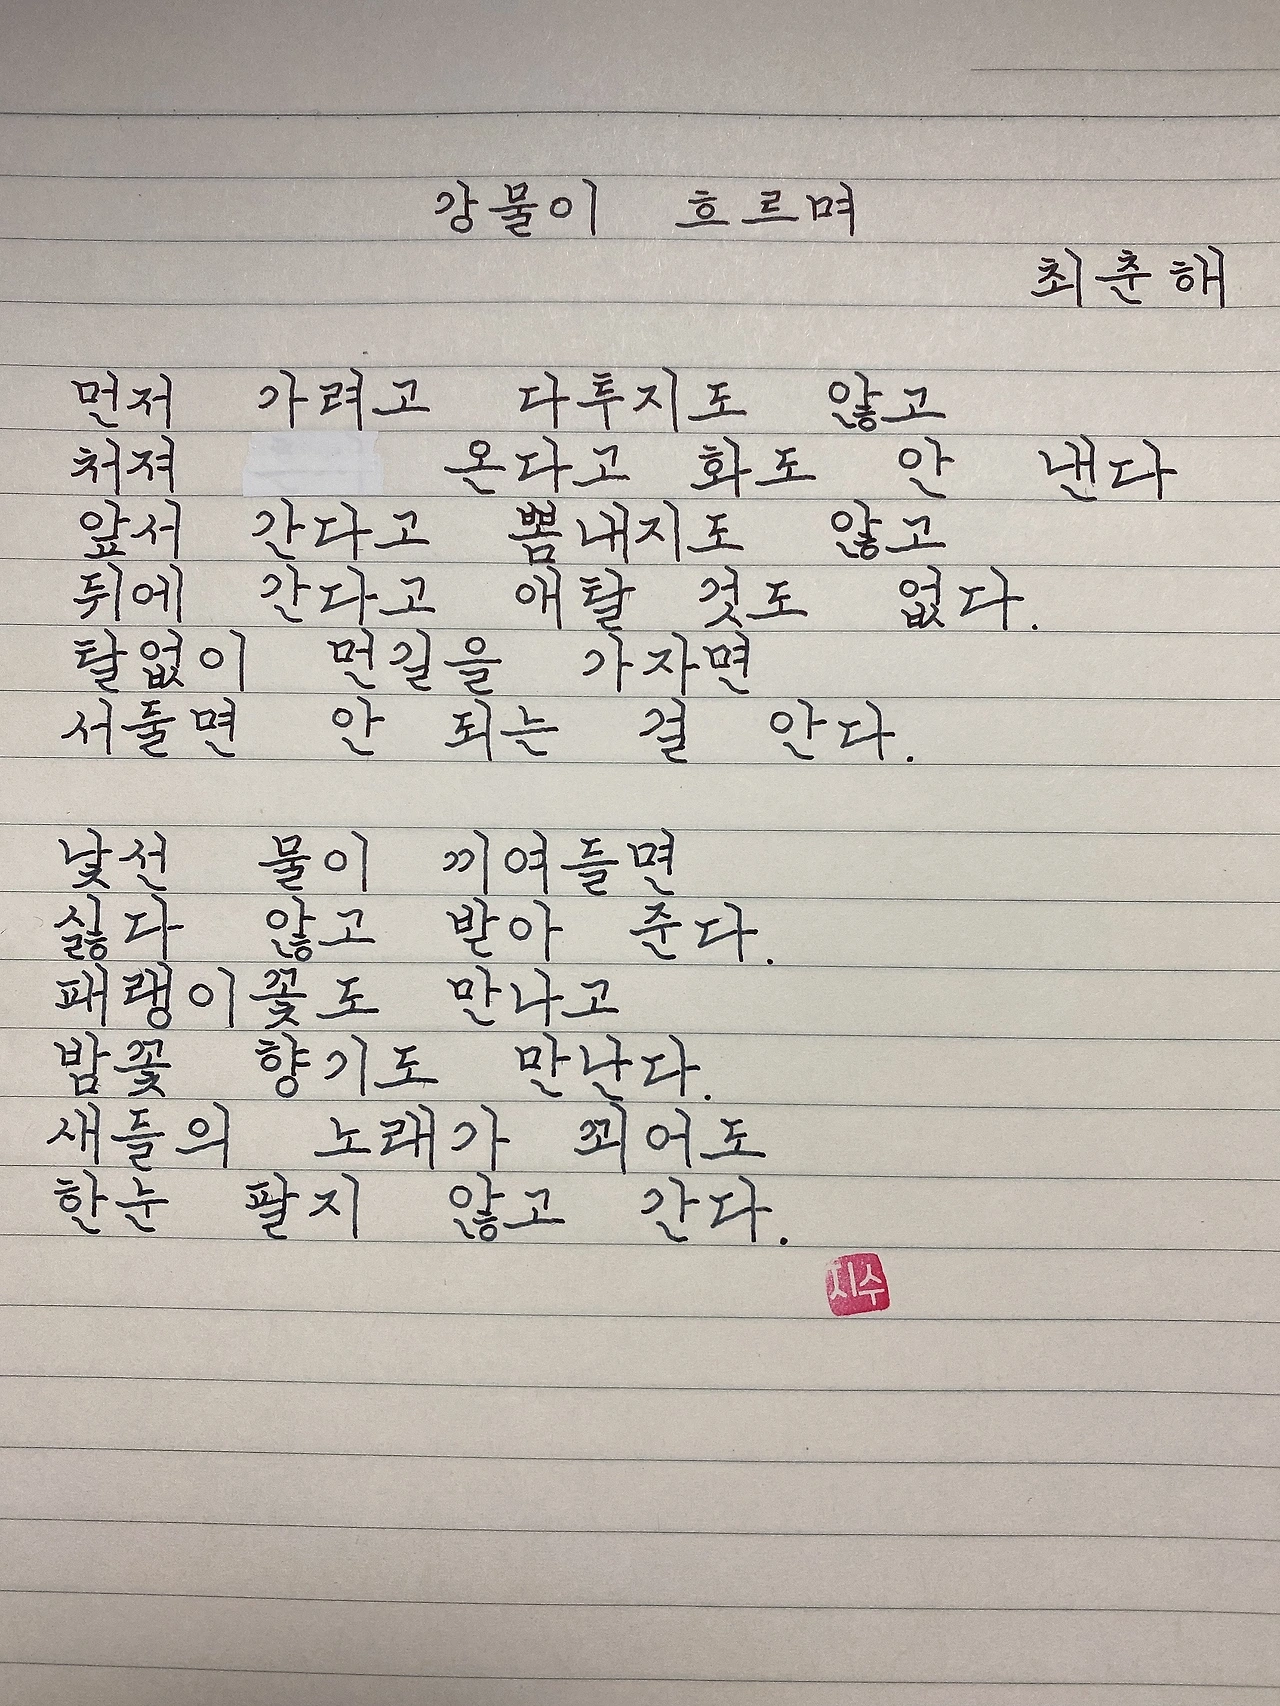 강물이 흐르며
최춘해
먼저 가려고 다투지도 않고
처져 온다고 화도 안 낸다
앞서 간다고 뽐내지도 않고
뒤에 간다고 애탈 것도 없다.
탈없이 먼길을 가자면
서둘면 안 되는 걸 안다.
낯선 물이 끼여들면
싫다 않고 받아 준다.
패랭이꽃도 만나고
밤꽃 향기도 만난다.
새들의 노래가 꾀어도
한눈 팔지 않고 간다.
지수